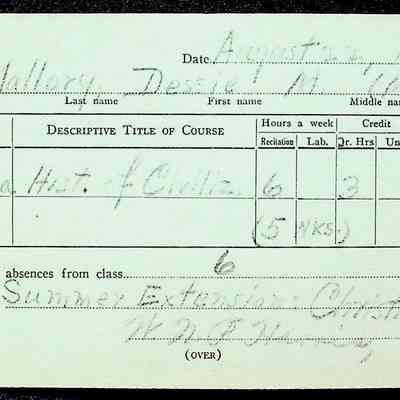 Date August 22,
Mallory, Dessie M.
Last name First name Middle nam
DESCRIPTIVE TITLE OF COURSE Hours a week Credit
Recitation Lab. Qr. Hrs Un
a Hist. of Civiliz. 6 3
(5 wks.)
absences from class 6
Summer Extension-
(OVER)